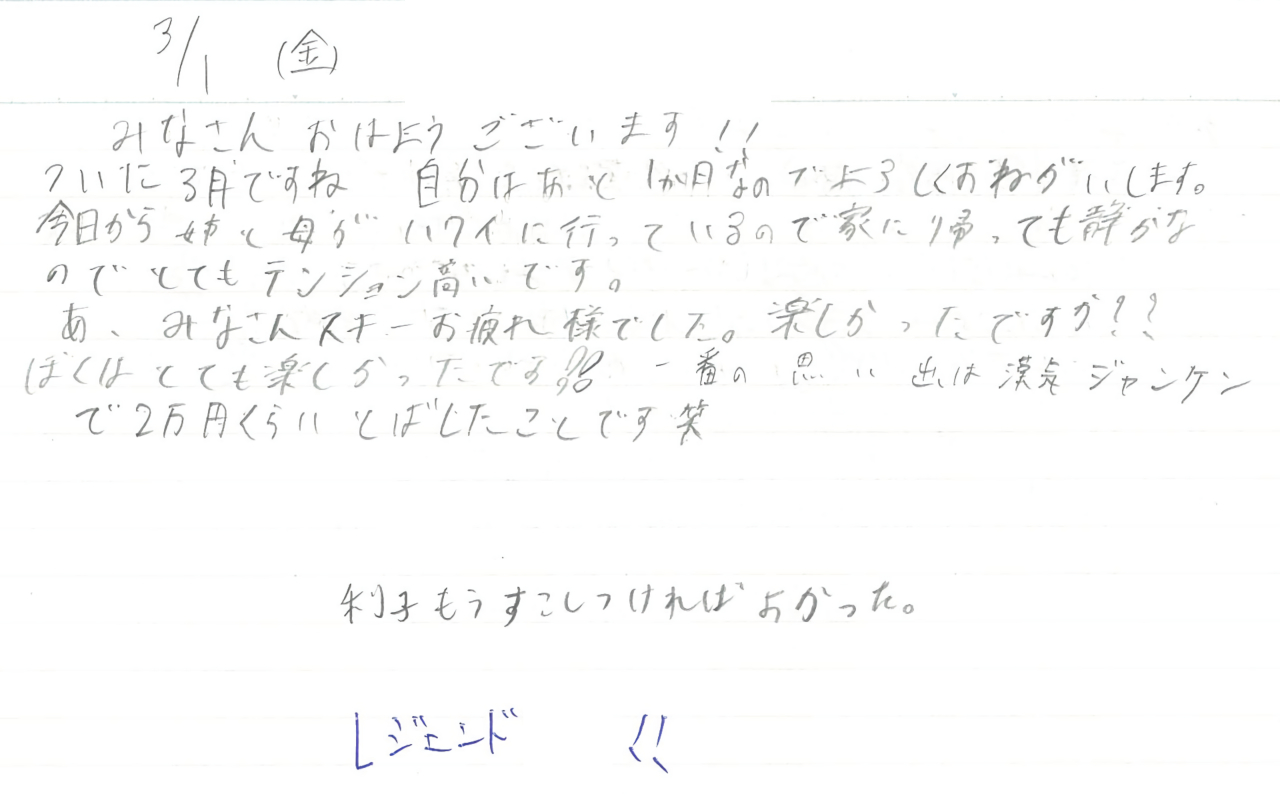 3/1 (金)
みなさん おはようございます!!
ついに3月ですね 自分はあと1か月なのでよろしくおねがいします。
今日から姉と母がハワイに行っているので家に帰っても静かな
のでとてもテンション高いです。
あ、みなさんスキーお疲れ様でした。楽しかったですか??
ぼくはとても楽しかったです!! 一番の思い出は漢気ジャンケン
で2万円くらいとばしたことです笑
利子もうすこしつければよかった。
レジェンド !!